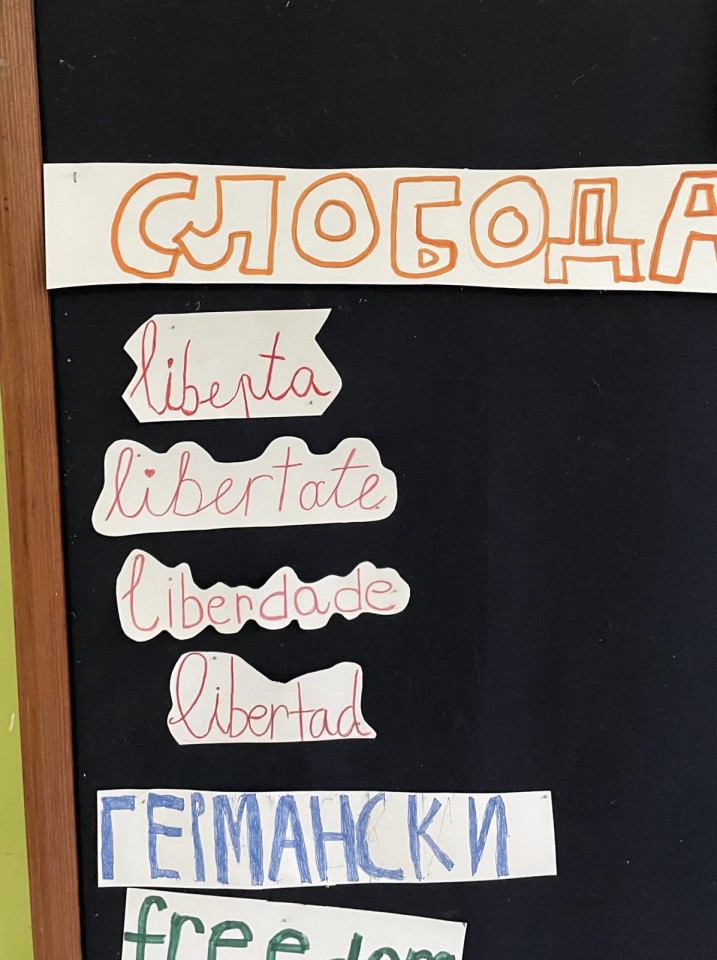 СЛОБОДА
liberta
libertate
liberdade
libertad
ГЕРМАНСКИ
freedom